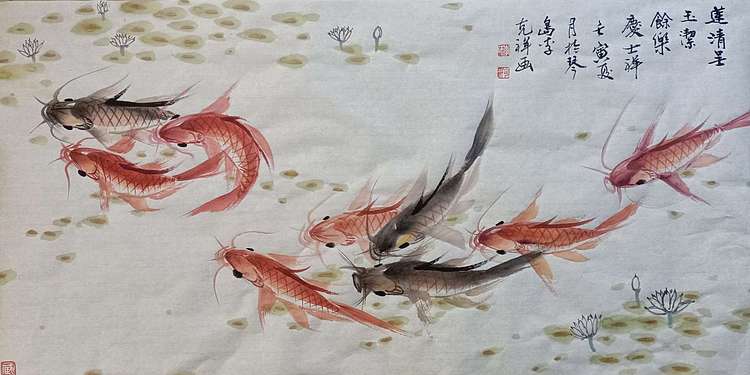 蓮清呈
玉潔
餘樂
慶吉祥
壬寅夏
月於琴
島李
克祥画